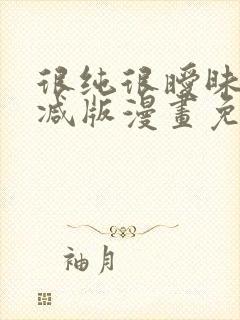 很纯很曖昧
减版漫畫免
袖月